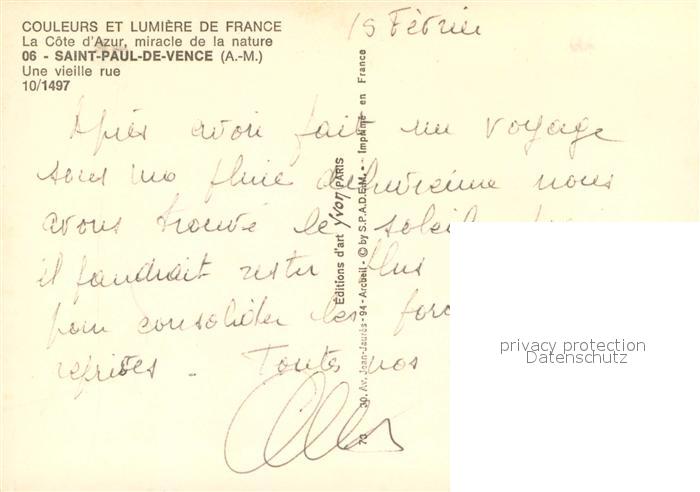 COULEURS ET LUMIÈRE DE FRANCE
La Côte d'Azur, miracle de la nature
06 - SAINT-PAUL-DE-VENCE (A.-M.)
Une vieille rue
10/1497
15 Février
Après avoir fait un voyage
sous une pluie diluvienne nous
avons trouvé le soleil
il faudrait rester plus
pour consolider les
reprises - Toutes nos
Editions d'art Yvon PARIS
70 30, Av. Jean-Jaurès - 94 - Arcueil - © by S.P.A.D.E.M. - Imprimé en France
privacy protection
Datenschutz